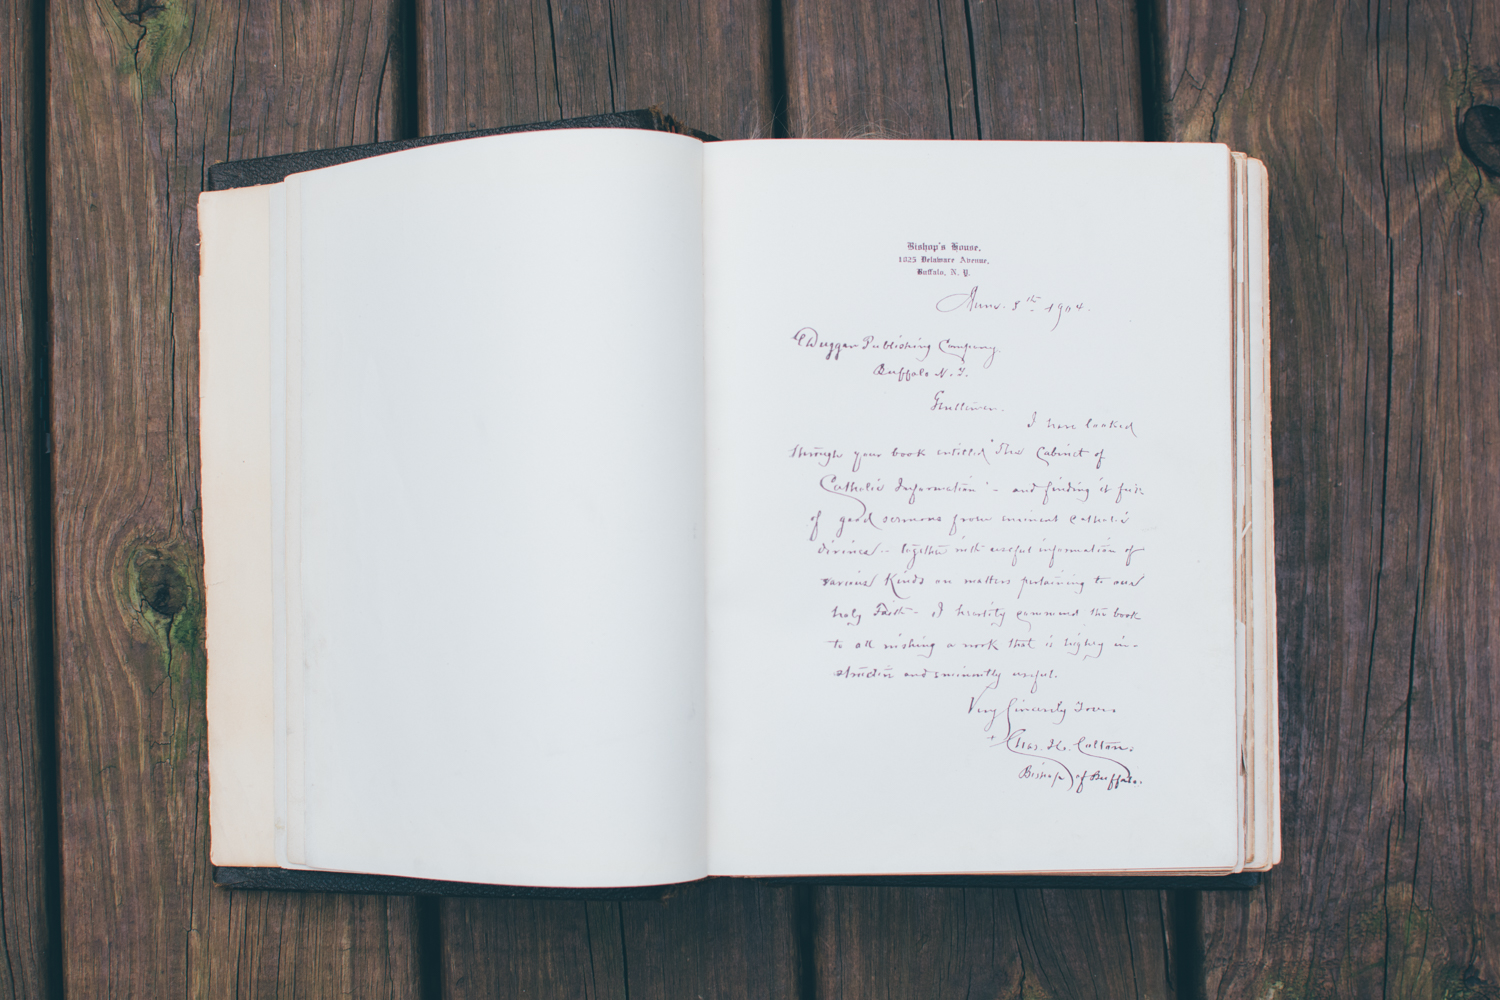 Bishop's House,
1025 Delaware Avenue,
Buffalo, N. Y.
5th 1904.
Duggan Publishing Company
Buffalo N. Y.
Gentlemen.
I have looked
through your book entitled "The Cabinet of
Catholic Information" - and finding it full
of good sermons from eminent Catholic
divines - together with useful information of
various kinds on matters pertaining to our
holy Faith - I heartily commend the book
to all wishing a work that is highly in-
structive and eminently useful.
Very Sincerely Yours
+ Chas. H. Colton.
Bishop of Buffalo.